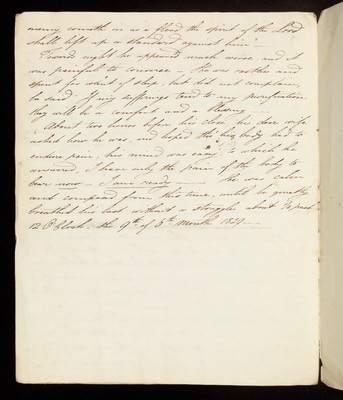 enemy cometh in as a flood the spirit of the Lord
shall lift up a standard against him —
Towards night he appeared much worse, and it
was painful to converse — He was restless and
spent for want of sleep, but did not complain,
he said If my sufferings tend to my purification
they will be a comfort and a blessing —
About two hours before his close, his dear wife
asked how he was, and hoped tho' his body had to
endure pain, his mind was easy, to which he
answered, I have only the pain of the body to
bear now — I am ready — He was calm
and composed from this time, until he quietly
breathed his last without a struggle about ¼ past
12 O'Clock the 9th of 5th Month 1829 —